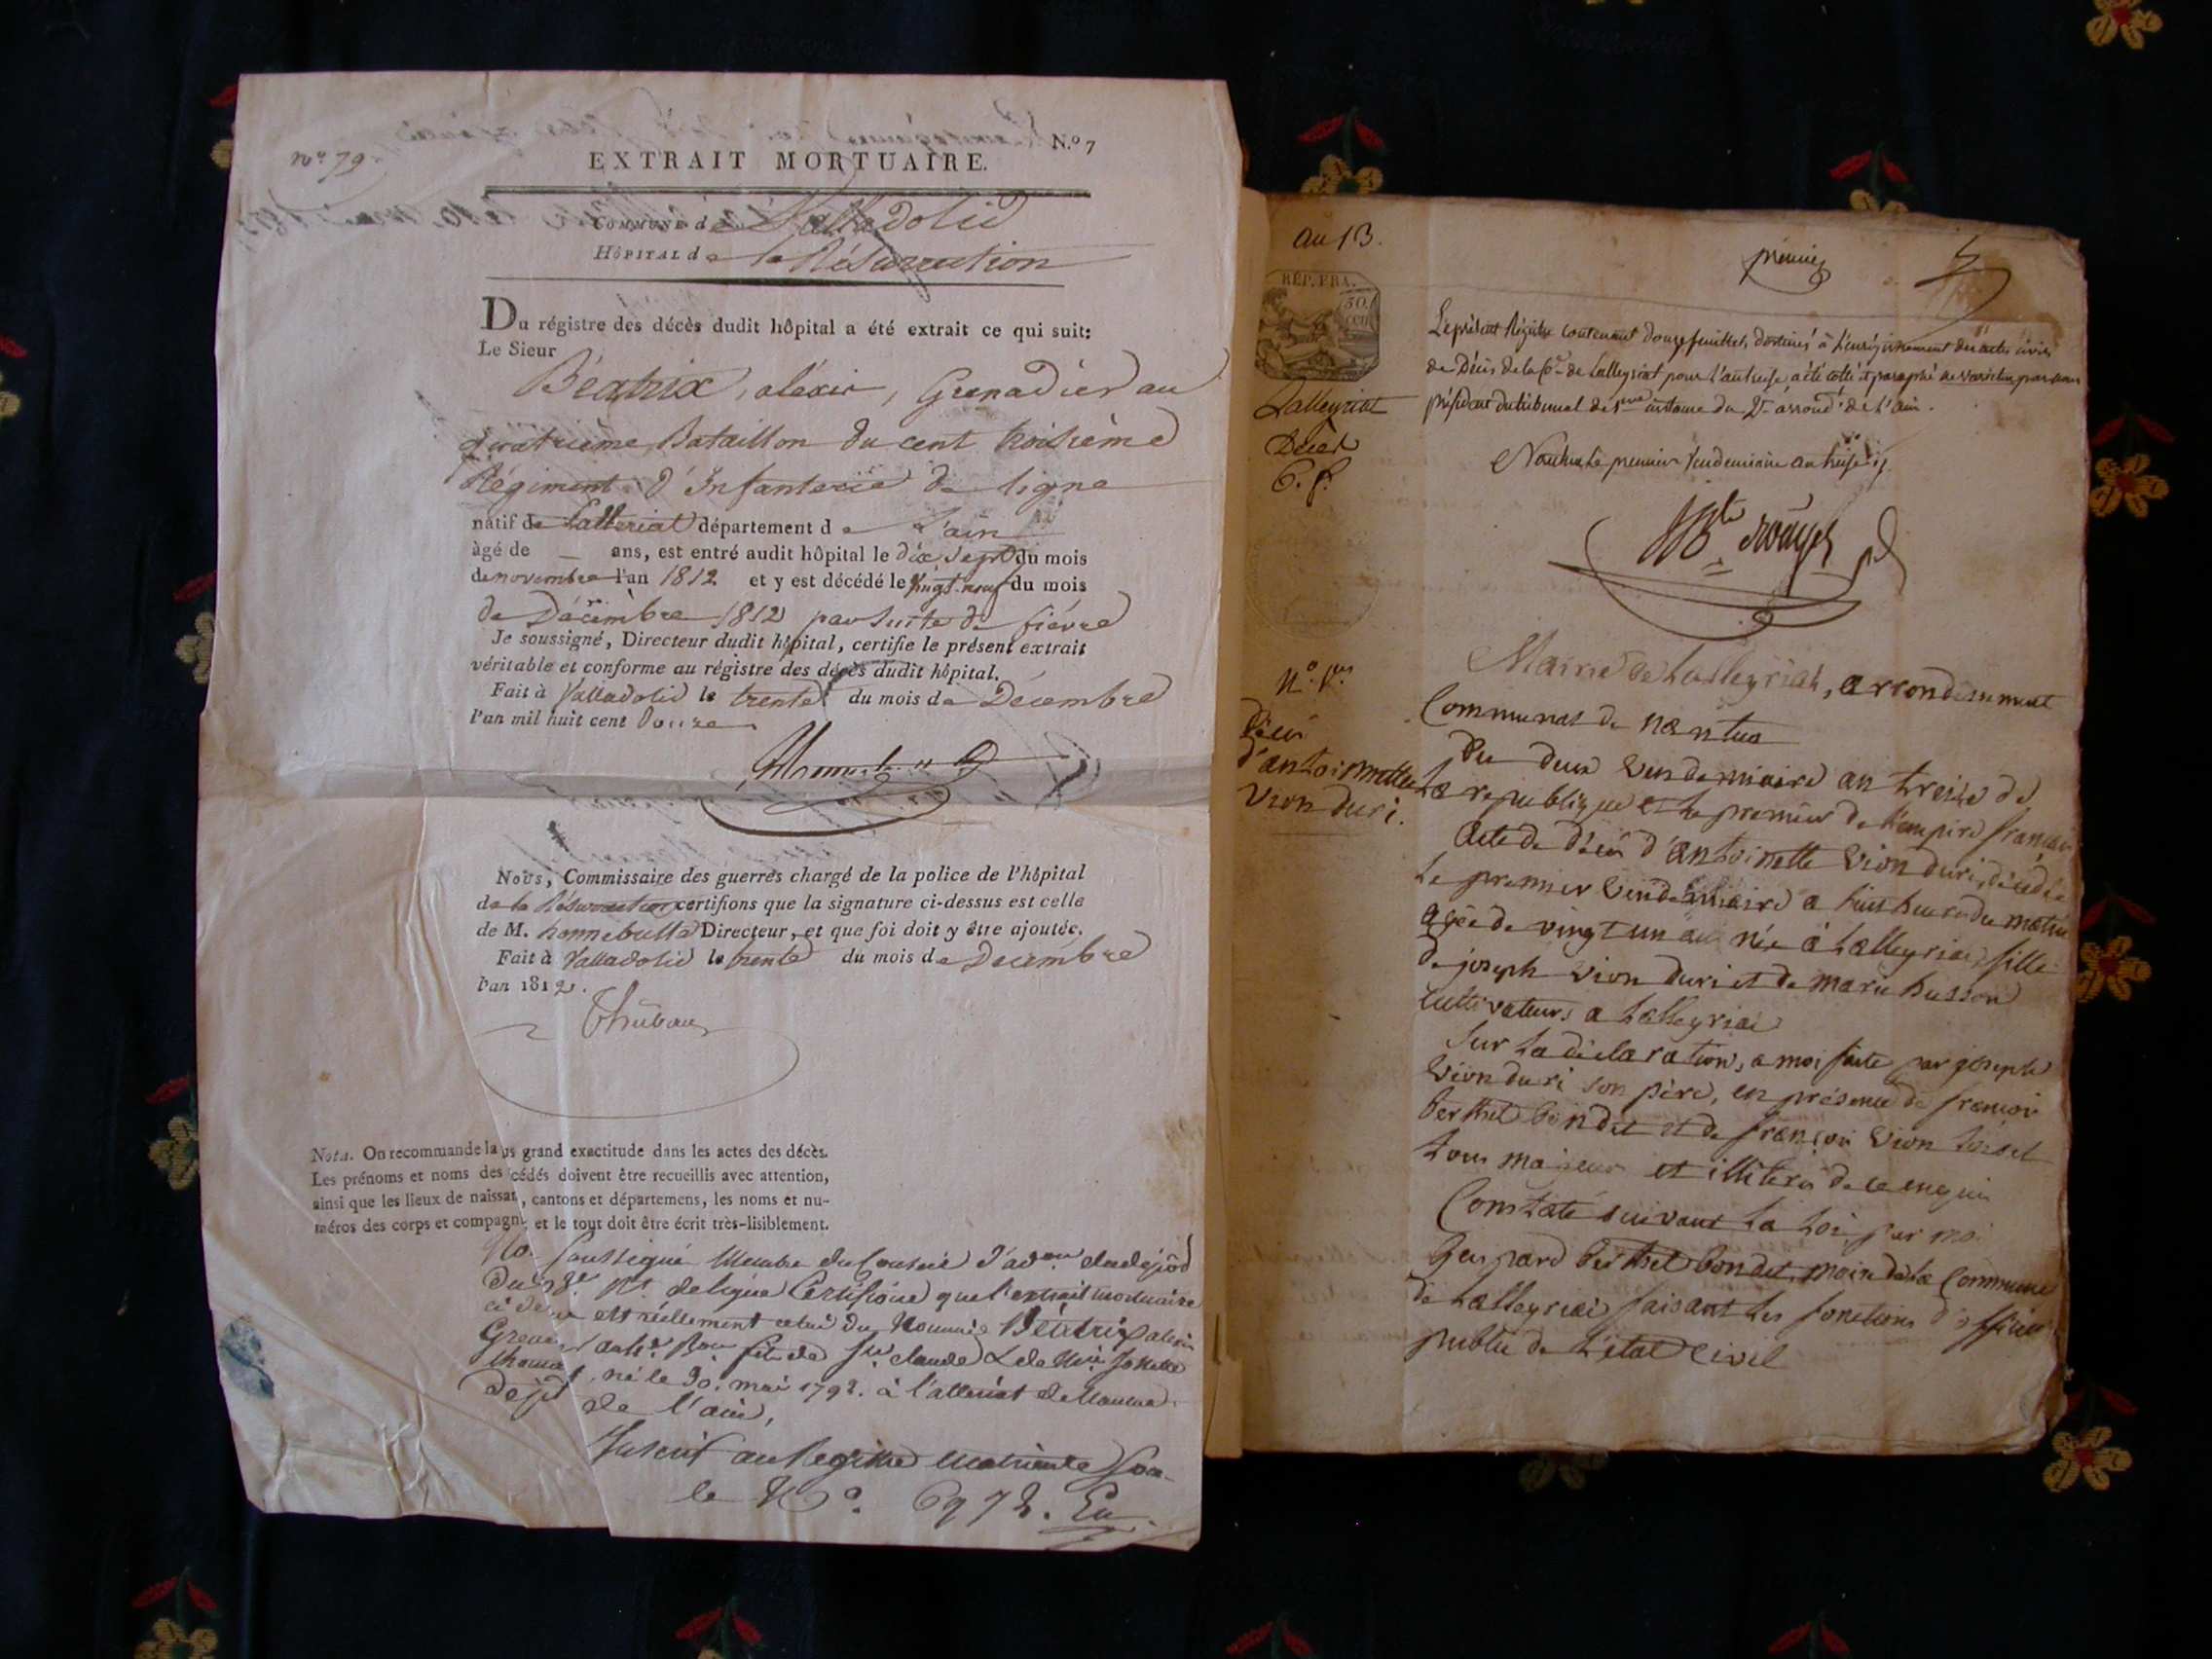 nº 79
N.º 7
EXTRAIT MORTUAIRE.
COMMUNE de Valladolid
HÔPITAL de la Résurrection
Du régistre des décès dudit hôpital a été extrait ce qui suit:
Le Sieur
Béatrix, aléxis, Grenadier au
quatrième Bataillon du cent troisième
Régiment d'Infanterie de ligne
natif de Lalleriat département de L'ain
âgé de — ans, est entré audit hôpital le dix sept du mois
de novembre l'an 1812 et y est décédé le vingt-neuf du mois
de Décembre 1812 par suite de fièvre
Je soussigné, Directeur dudit hôpital, certifie le présent extrait
véritable et conforme au régistre des décès dudit hôpital.
Fait à Valladolid le trente du mois de Décembre
l'an mil huit cent Douze
Nous, Commissaire des guerres chargé de la police de l'hôpital
de la Résurrection certifions que la signature ci-dessus est celle
de M. honnebutte Directeur, et que foi doit y être ajoutée.
Fait à Valladolid le trente du mois de Décembre
l'an 1812.
Nota. On recommande la us grand exactitude dans les actes des décès.
Les prénoms et noms des cédés doivent être recueillis avec attention,
ainsi que les lieux de naissan, cantons et départemens, les noms et nu-
méros des corps et compagni et le tout doit être écrit très-lisiblement.
soussigné Membre du Conseil d'adon du dépôt
du de ligne Certifions que l'extrait mortuaire
ci dessus est réellement celui du Nommé Béatrix alexis
Gren fils de claude & de
thomas, né le 30. mai 1792. à l'alleriat
dept de l'ain,
Inscrit au Registre Matricule sous
le Nº. 6972.
an 13.
premier
RÉP. FRA.
50.
cen
Lalleyriat
Décès
Le présent Registre contenant douze feuillets, destinés à l'enregistrement des actes civils
de Décès de la Cne de Lalleyriat pour l'an treize, a été cotté et paraphé par nous
président du tribunal de 1ere instance du arrond.t de l'ain.
Nantua le premier Vendemiaire an treize
Mairie de Lalleyriat, arrondissement
Communal de nantua
N.º 1er
Décès
d'antoinette
Vion duri.
Du deux Vendemiaire an treize de
La republique et le premier de l'empire français
Acte de décès d'antoinette Vion duri, décédée
le premier Vendemiaire a huit heures du matin
agée de vingt un an née à Lalleyriat, fille
de joseph Vion duri et de marie husson
cultivateurs a Lalleyriat
Sur la déclaration, a moi faite par joseph
Vion duri son père, en présence de françois
berthet bondet et de françois Vion loisel
tous majeurs et illiterés de ce enquis
Constaté suivant la loi, par moi
gaspard berthet bondet, maire de la Commune
de Lalleyriat faisant les fonctions d'officier
public de l'état Civil